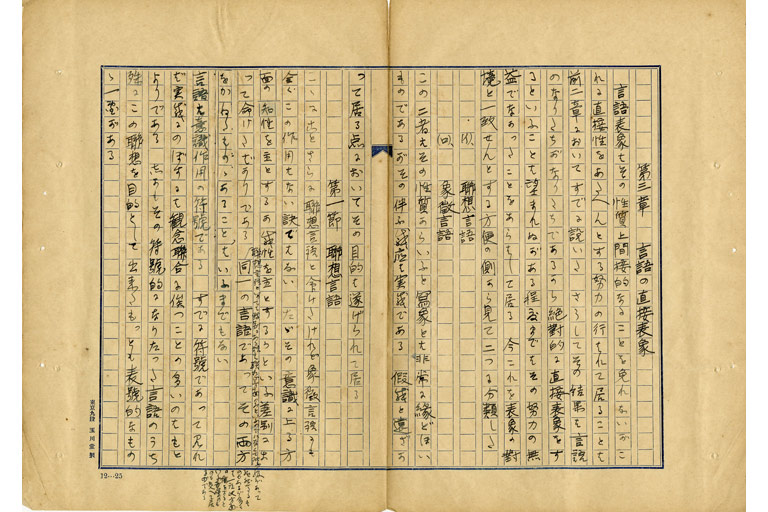 第三章　言語の直接表象
言語表象もその性質上間接的なることを免れないがこ
れに直接性をあたへんとする努力の行はれて居ることも
前二章においてすでに説いた　さうしてその結果も言語
のなりたちがなりたちであるから絶対的な直接表象をす
るといふことも望まれぬがある程度までもその努力の無
益でなかつたことをあらはして居る　今これを表象の對
境と一致せんとする方便の側から見て二つに分類した
(イ)　聯想言語
(ロ)　象徴言語
この二者もその性質からいふと寫象とも非常な縁どほい
ものであるがその伴ふ 感も実感である　假感と違ざか
つて居る点においてその目的を遂げられて居る
第一節　聯想言語
こゝにことさらに聯想言語と命けたけれど象徴言語も
全くこの作用もない訣でもない　たゞその意識に上る方
面の知性を主とするか感性を主とするかといふ差別によ
つて命けたまでゞある　同一の言語であつてその両方
をかねたものがあることもいふまでもない
言語も意識作用の符號である　すでに符號であつて見れ
ば実感にのぼするも観念聯合に俟つことの多いのももと
よりである　しかもその符號的になりたつた言語のうち
殊にこの聯想を目的として出来たもつとも表號的なもの
ゝ一群がある
東京九段　玉川堂製
12—25